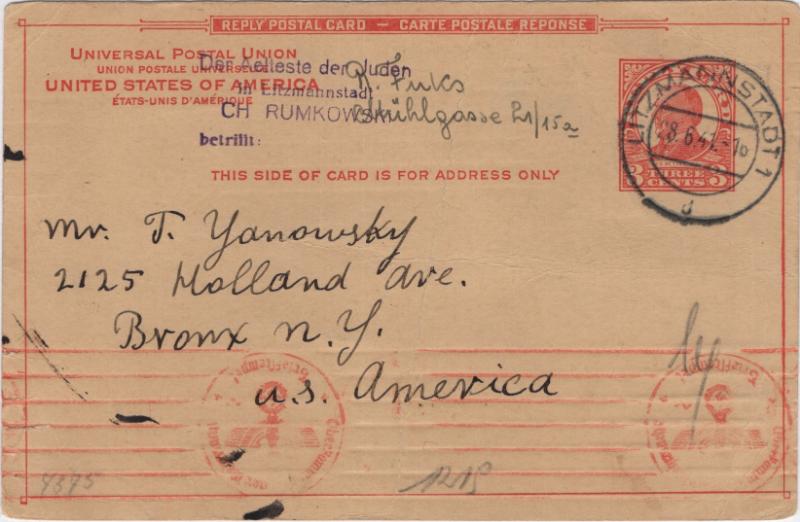 REPLY POSTAL CARD — CARTE POSTALE REPONSE
UNIVERSAL POSTAL UNION
UNION POSTALE UNIVERSELLE
UNITED STATES OF AMERICA
ÉTATS-UNIS D'AMÉRIQUE
Der Aelteste der Juden
in Litzmannstadt
CH RUMKOWSKI
betrifft:
R. Fuks
Mühlgasse 21/15a
LITZMANNSTADT 1
28.6.41
d
3 THREE 3
CENTS
THIS SIDE OF CARD IS FOR ADDRESS ONLY
Mr. T. Yanowsky
2125 Holland Ave.
Bronx N.Y.
U.S. America
1219